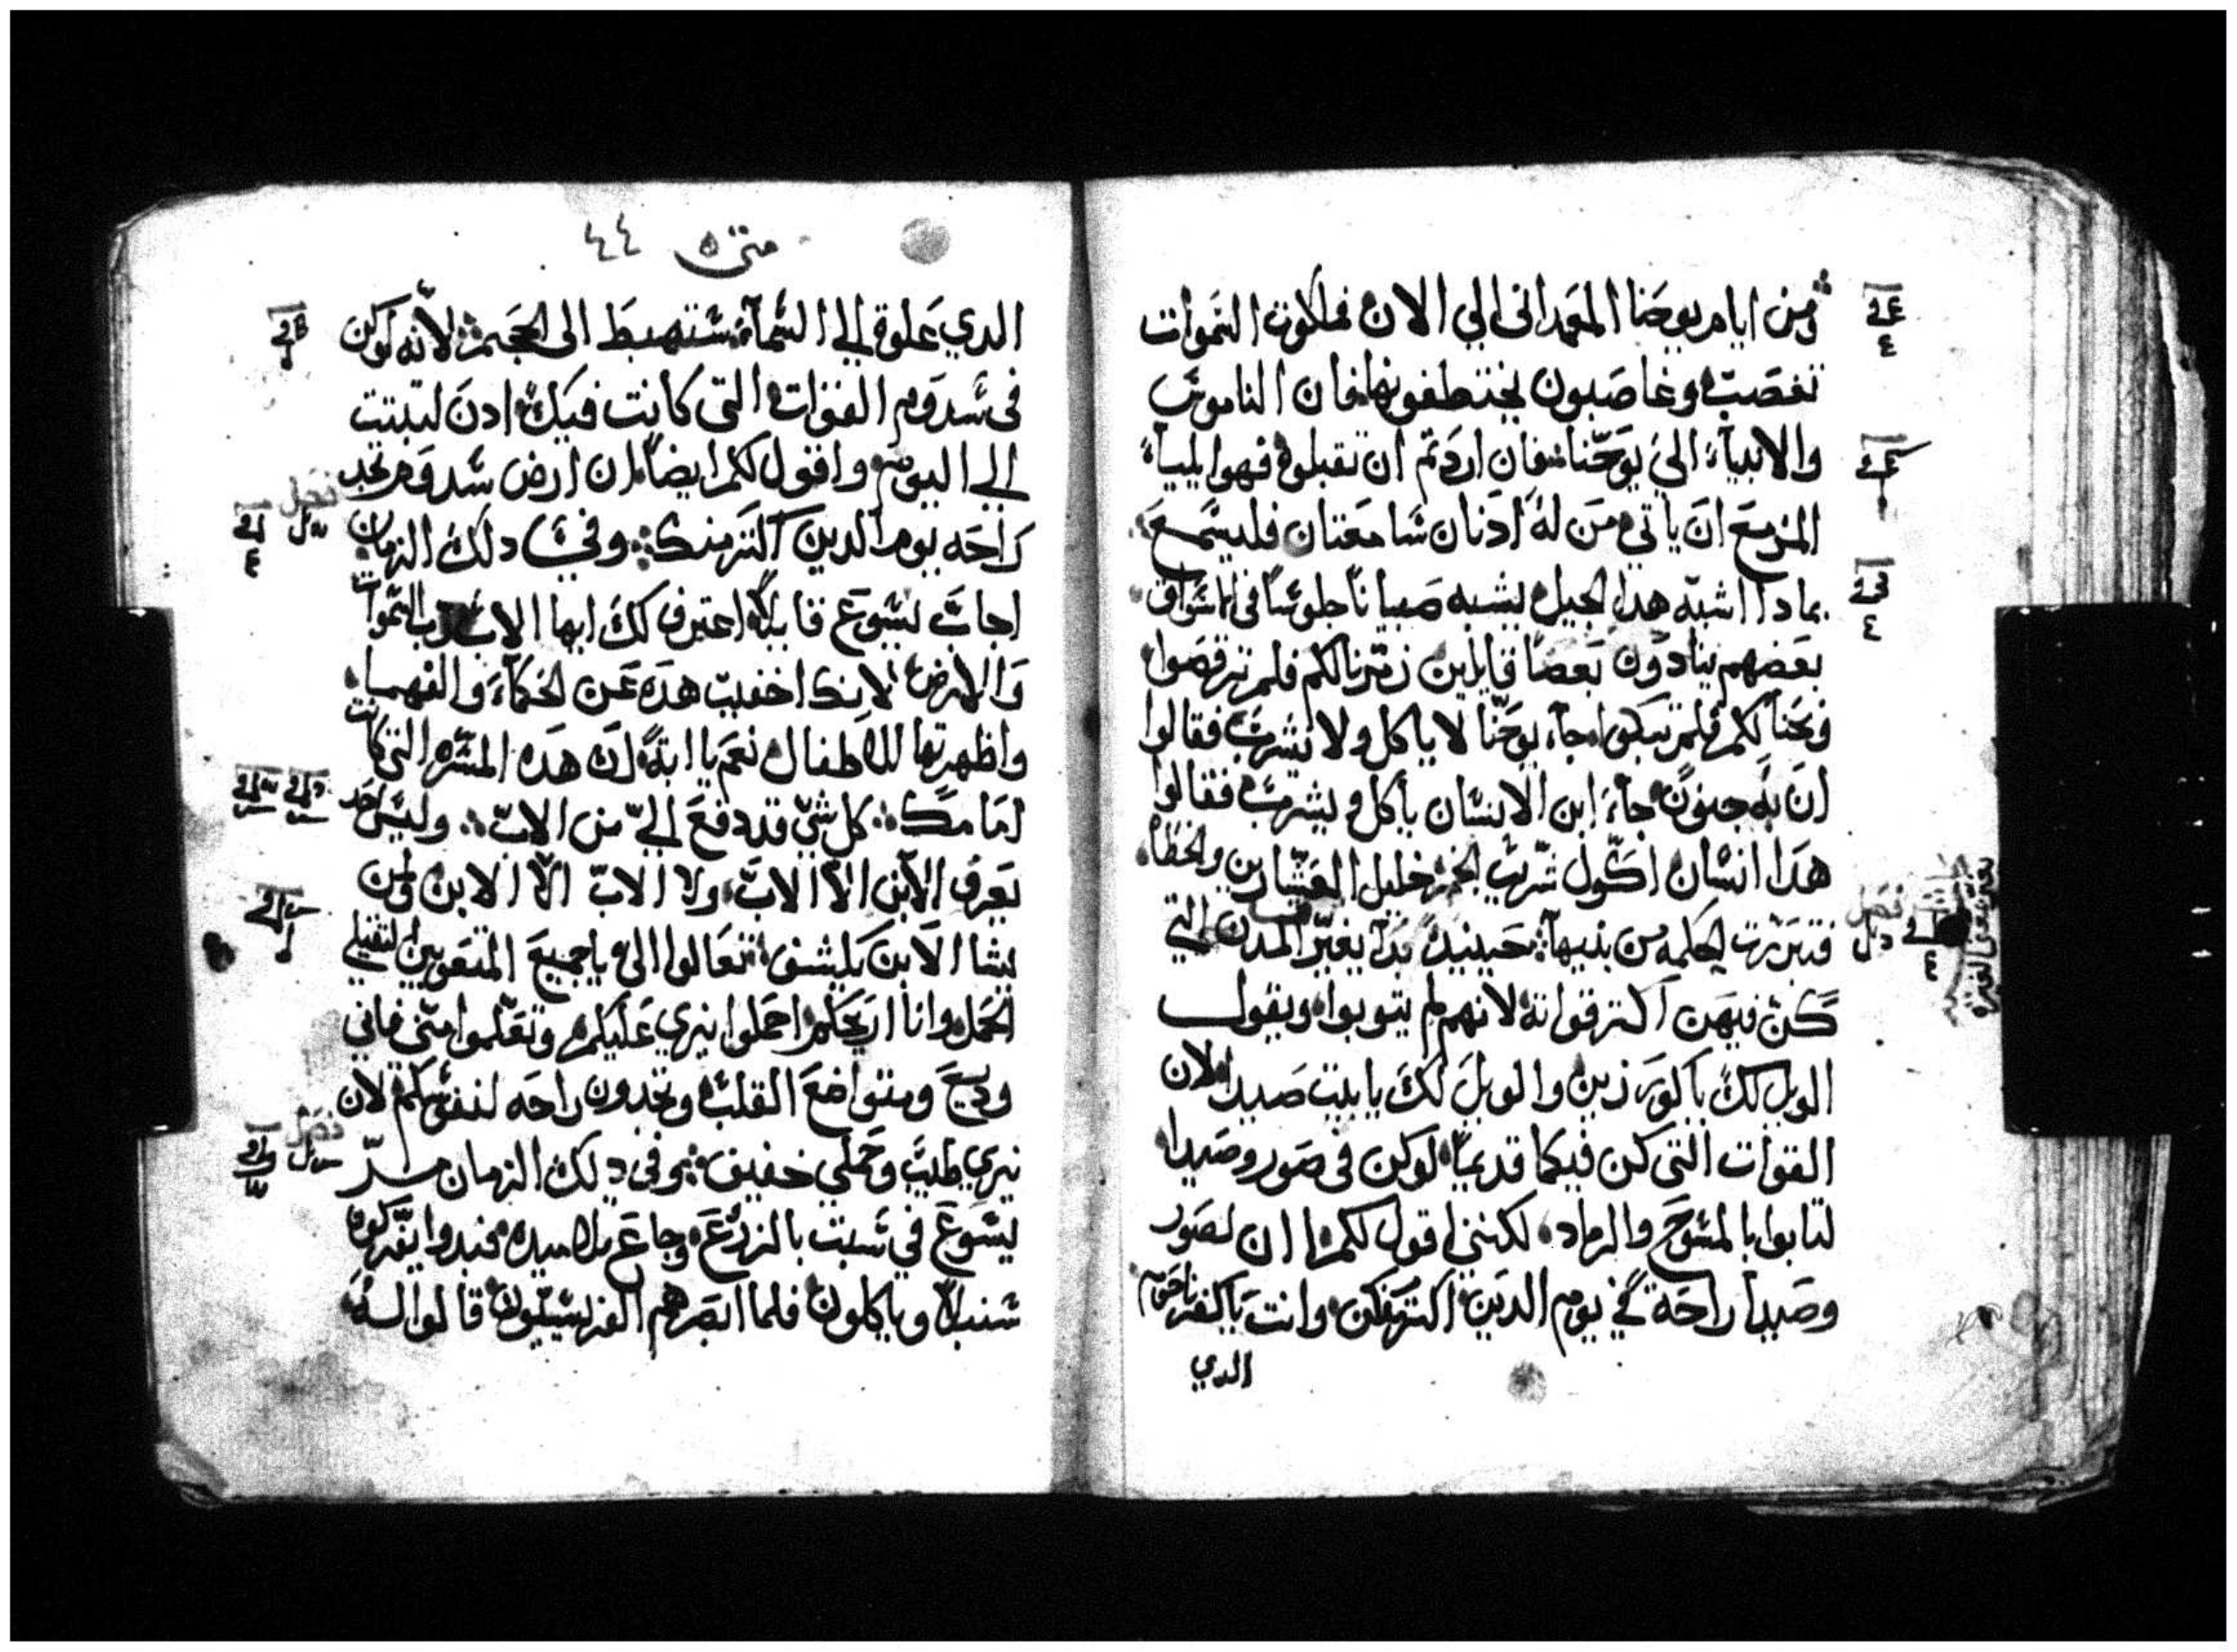 ومن ايام يوحنا المعمداني الي الان فملكوت السموات
تغصب وغاصبون يختطفونها فان الناموس
والانبياء الي يوحنا فان اردتم ان تقبلوه فهوا ايلياء
المزمع ان ياتي من له ادنان سامعتان فليسمع
بمادا اشبه هدا الجيل يشبه صبيانا جلوسا في الاسواق
بعضهم ينادون بعضا قايلين زمرنا لكم فلم ترقصوا
ونحنا لكم فلم تبكوا جاء يوحنا لا ياكل ولا يشرب فقالوا
ان به جنون جاء ابن الانسان ياكل ويشرب فقالوا
هدا انسان اكول شريب الخمر خليل العشارين والخطاه
فتبررت الحكمه من بنيها حينيد بدا يعير المدن التي
كن فيهن اكتر قواته لانهم لم يتوبوا ويقول
الويل لك يا كورزين والويل لك يا بيت صيدا لان
القوات التي كن فيكما قديما لو كن في صور وصيدا
لتابوا بالمسوح والرماد لكنني اقول لكم ان لصور
وصيدا راحة في يوم الدين اكتر منكن وانت يا كفرناحوم
الدي
متى ٥ ٤٤
الدي علوة الي السماء ستهبط الى الجحيم لانه لو كن
في سدوم القوات التي كانت فيك ادن لتبتت
الي اليوم واقول لكم ايضا ان ارض سدوم تجد
راحه يوم الدين اكتر منك وفي دلك الزمان
اجاب يسوع قايلا اعترف لك ايها الاب رب السموات
والارض لانك اخفيت هده عن الحكماء والفهماء
واظهرتها للاطفال نعم يا ابة لان هده المسره التي كانت
امامك كل شي قد دفع الي من الاب وليس احد
يعرف الابن الا الاب ولا الاب الا الابن ولمن
يشا الابن يكشف تعالوا الي يا جميع المتعوبين الثقيلي
الحمل وانا اريحكم احملوا نيري عليكم وتعلموا مني فاني
وديع ومتواضع القلب وتجدون راحه لنفوسكم لان
نيري طيب وحملي خفيف وفي دلك الزمان مر
يسوع في سبت بالزرع وجاع تلاميده فبدوا يفركون
سنبلا وياكلون فلما ابصرهم الفريسيون قالوا له